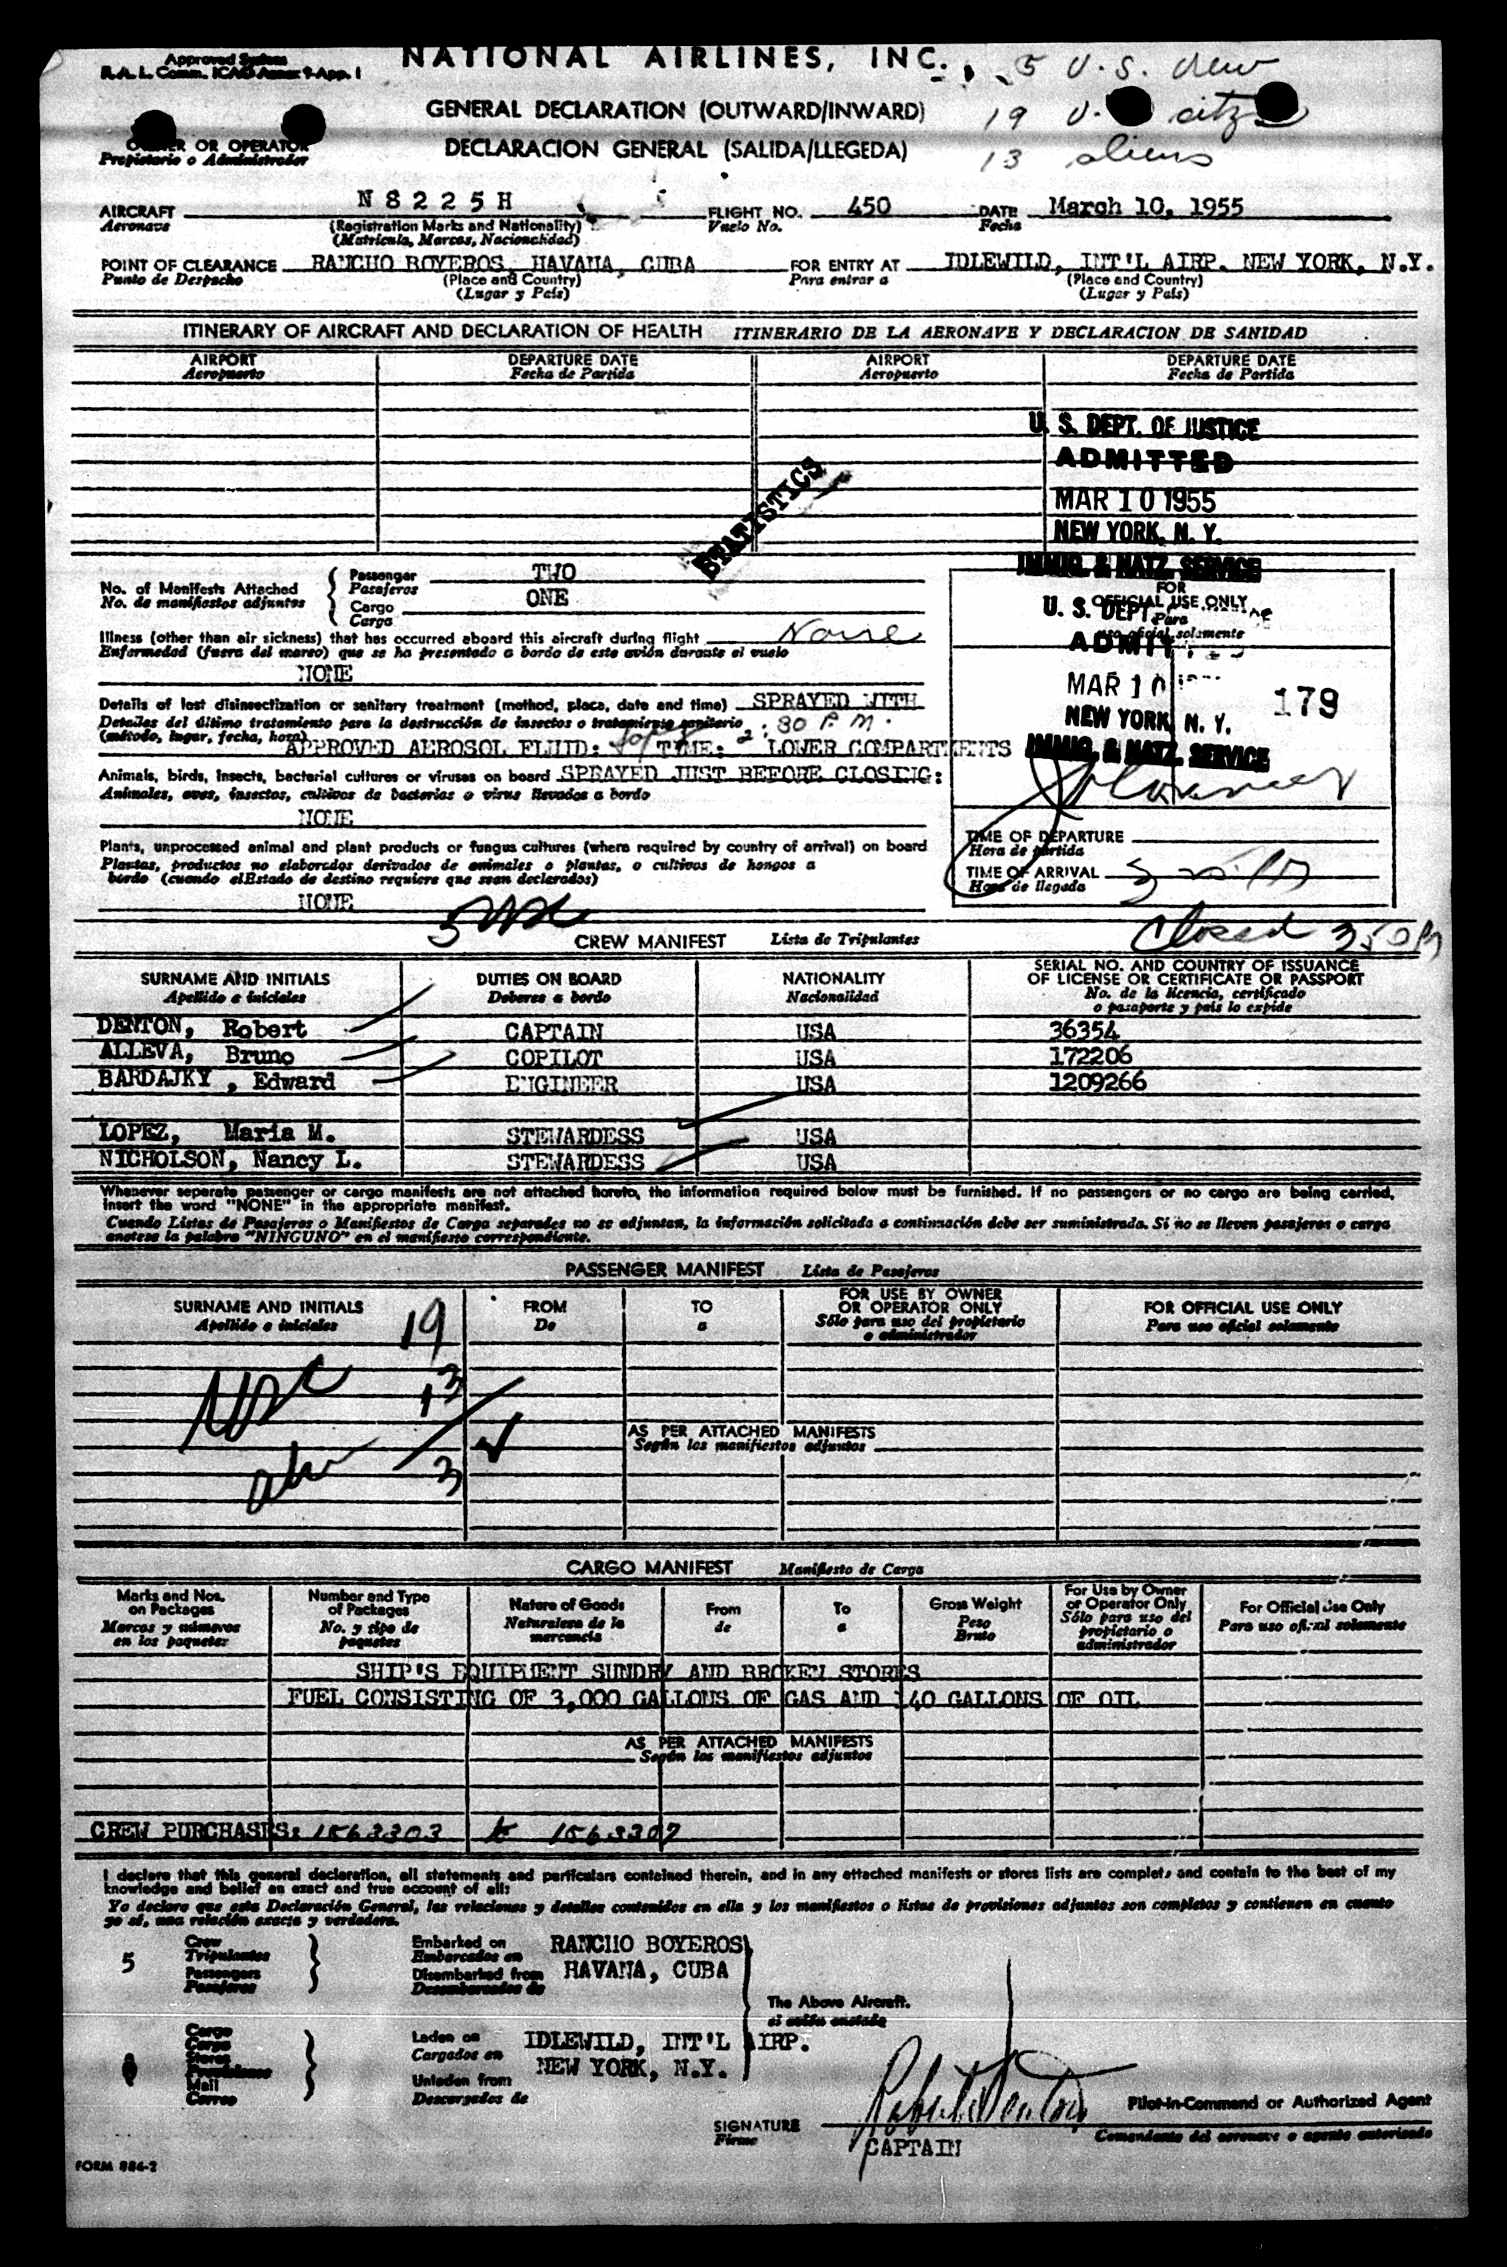 Approved System
R.A.L. Comm. ICAO Annex 9-App. 1
NATIONAL AIRLINES, INC.
5 U.S. crew
GENERAL DECLARATION (OUTWARD/INWARD)
19 U. citz
OWNER OR OPERATOR
Propietario o Administrador
DECLARACION GENERAL (SALIDA/LLEGEDA)
13 aliens
AIRCRAFT N8225H FLIGHT NO. 450 DATE March 10, 1955
Aeronave (Registration Marks and Nationality) Vuelo No. Fecha
(Matricula, Marcas, Nacionalidad)
POINT OF CLEARANCE RANCHO BOYEROS, HAVANA, CUBA FOR ENTRY AT IDLEWILD, INT'L AIRP. NEW YORK, N.Y.
Punto de Despacho (Place and Country) Para entrar a (Place and Country)
(Lugar y País) (Lugar y País)
ITINERARY OF AIRCRAFT AND DECLARATION OF HEALTH ITINERARIO DE LA AERONAVE Y DECLARACION DE SANIDAD
AIRPORT DEPARTURE DATE AIRPORT DEPARTURE DATE
Aeropuerto Fecha de Partida Aeropuerto Fecha de Partida
U. S. DEPT. OF JUSTICE
ADMITTED
MAR 10 1955
NEW YORK, N. Y.
IMMIG. & NATZ. SERVICE
STATISTICS
No. of Manifests Attached Passenger TWO
No. de manifiestos adjuntos Pasajeros
Cargo ONE
Carga
FOR
OFFICIAL USE ONLY
Para
uso oficial solamente
U. S. DEPT
ADMIT
MAR 10
NEW YORK, N. Y.
IMMIG. & NATZ. SERVICE
179
Illness (other than air sickness) that has occurred aboard this aircraft during flight None
Enfermedad (fuera del mareo) que se ha presentado a bordo de este avión durante el vuelo
NONE
Details of last disinsectization or sanitary treatment (method, place, date and time) SPRAYED WITH
Detailes del último tratamiento para la destrucción de insectos o tratamiento sanitario
(método, lugar, fecha, hora)
APPROVED AEROSOL FLUID: Lopez TIME: 2:30 P.M. LOWER COMPARTMENTS
Animals, birds, insects, bacterial cultures or viruses on board SPRAYED JUST BEFORE CLOSING:
Animales, aves, insectos, cultivos de bacterias o virus llevados a bordo
NONE
Plants, unprocessed animal and plant products or fungus cultures (where required by country of arrival) on board
Plantas, productos no elaborados derivados de animales o plantas, o cultivos de hongos a
bordo (cuando elEstado de destino requiere que sean declarados)
NONE
TIME OF DEPARTURE
Hora de partida
TIME OF ARRIVAL
Hora de llegada
Closed 350PM
CREW MANIFEST Lista de Tripulantes
SURNAME AND INITIALS DUTIES ON BOARD NATIONALITY SERIAL NO. AND COUNTRY OF ISSUANCE
OF LICENSE OR CERTIFICATE OR PASSPORT
Apellido e iniciales Deberes a bordo Nacionalidad No. de la licencia, certificado
o pasaporte y país lo expide
DENTON, Robert CAPTAIN USA 36354
ALLEVA, Bruno COPILOT USA 172206
BARDAJKY, Edward ENGINEER USA 1209266
LOPEZ, Maria M. STEWARDESS USA
NICHOLSON, Nancy L. STEWARDESS USA
Whenever seperate passenger or cargo manifests are not attached hereto, the information required below must be furnished. If no passengers or no cargo are being carried,
insert the word "NONE" in the appropriate manifest.
Cuando Listas de Pasajeros o Manifiestos de Carga separados no se adjuntan, la información solicitada a continuación debe ser suministrada. Si no se lleven pasajeros o carga
anotese la palabra "NINGUNO" en el manifiesto correspondiente.
PASSENGER MANIFEST Lista de Pasajeros
SURNAME AND INITIALS FROM TO FOR USE BY OWNER
OR OPERATOR ONLY FOR OFFICIAL USE ONLY
Apellido e iniciales De a Sólo para uso del propietario
o administrador Para uso oficial solamente
19
13
3
AS PER ATTACHED MANIFESTS
Según los manifiestos adjuntos
CARGO MANIFEST Manifiesto de Carga
Marks and Nos.
on Packages
Marcas y números
en los paquetes
Number and Type
of Packages
No. y tipo de
paquetes
Nature of Goods
Naturaleza de la
mercancia
From
de
To
a
Gross Weight
Peso
Bruto
For Use by Owner
or Operator Only
Sólo para uso del
propietario o
administrador
For Official Use Only
Para uso oficial solamente
SHIP'S EQUIPMENT SUNDRY AND BROKEN STORES
FUEL CONSISTING OF 3,000 GALLONS OF GAS AND 140 GALLONS OF OIL
AS PER ATTACHED MANIFESTS
Según los manifiestos adjuntos
CREW PURCHASES: 1563303 to 1563307
I declare that this general declaration, all statements and particulars contained therein, and in any attached manifests or stores lists are complete and contain to the best of my
knowledge and belief an exact and true account of all:
Yo declaro que esta Declaración General, las relaciones y detalles contenidos en ella y los manifiestos o listas de provisiones adjuntos son completos y contienen en cuanto
yo sé, una relación exacta y verdadera.
5 Crew
Tripulantes
Passengers
Pasajeros
Embarked on
Embarcados en
Disembarked from
Desembarcados de
RANCHO BOYEROS
HAVANA, CUBA
The Above Aircraft.
el avión anotado
Cargo
Carga
Stores
Provisiones
Mail
Correo
Laden on
Cargados en
Unladen from
Descargados de
IDLEWILD, INT'L AIRP.
NEW YORK, N.Y.
SIGNATURE Robert Denton Pilot-in-Command or Authorized Agent
Firma CAPTAIN Comandante del aeronave o agente autorizado
FORM 886-2